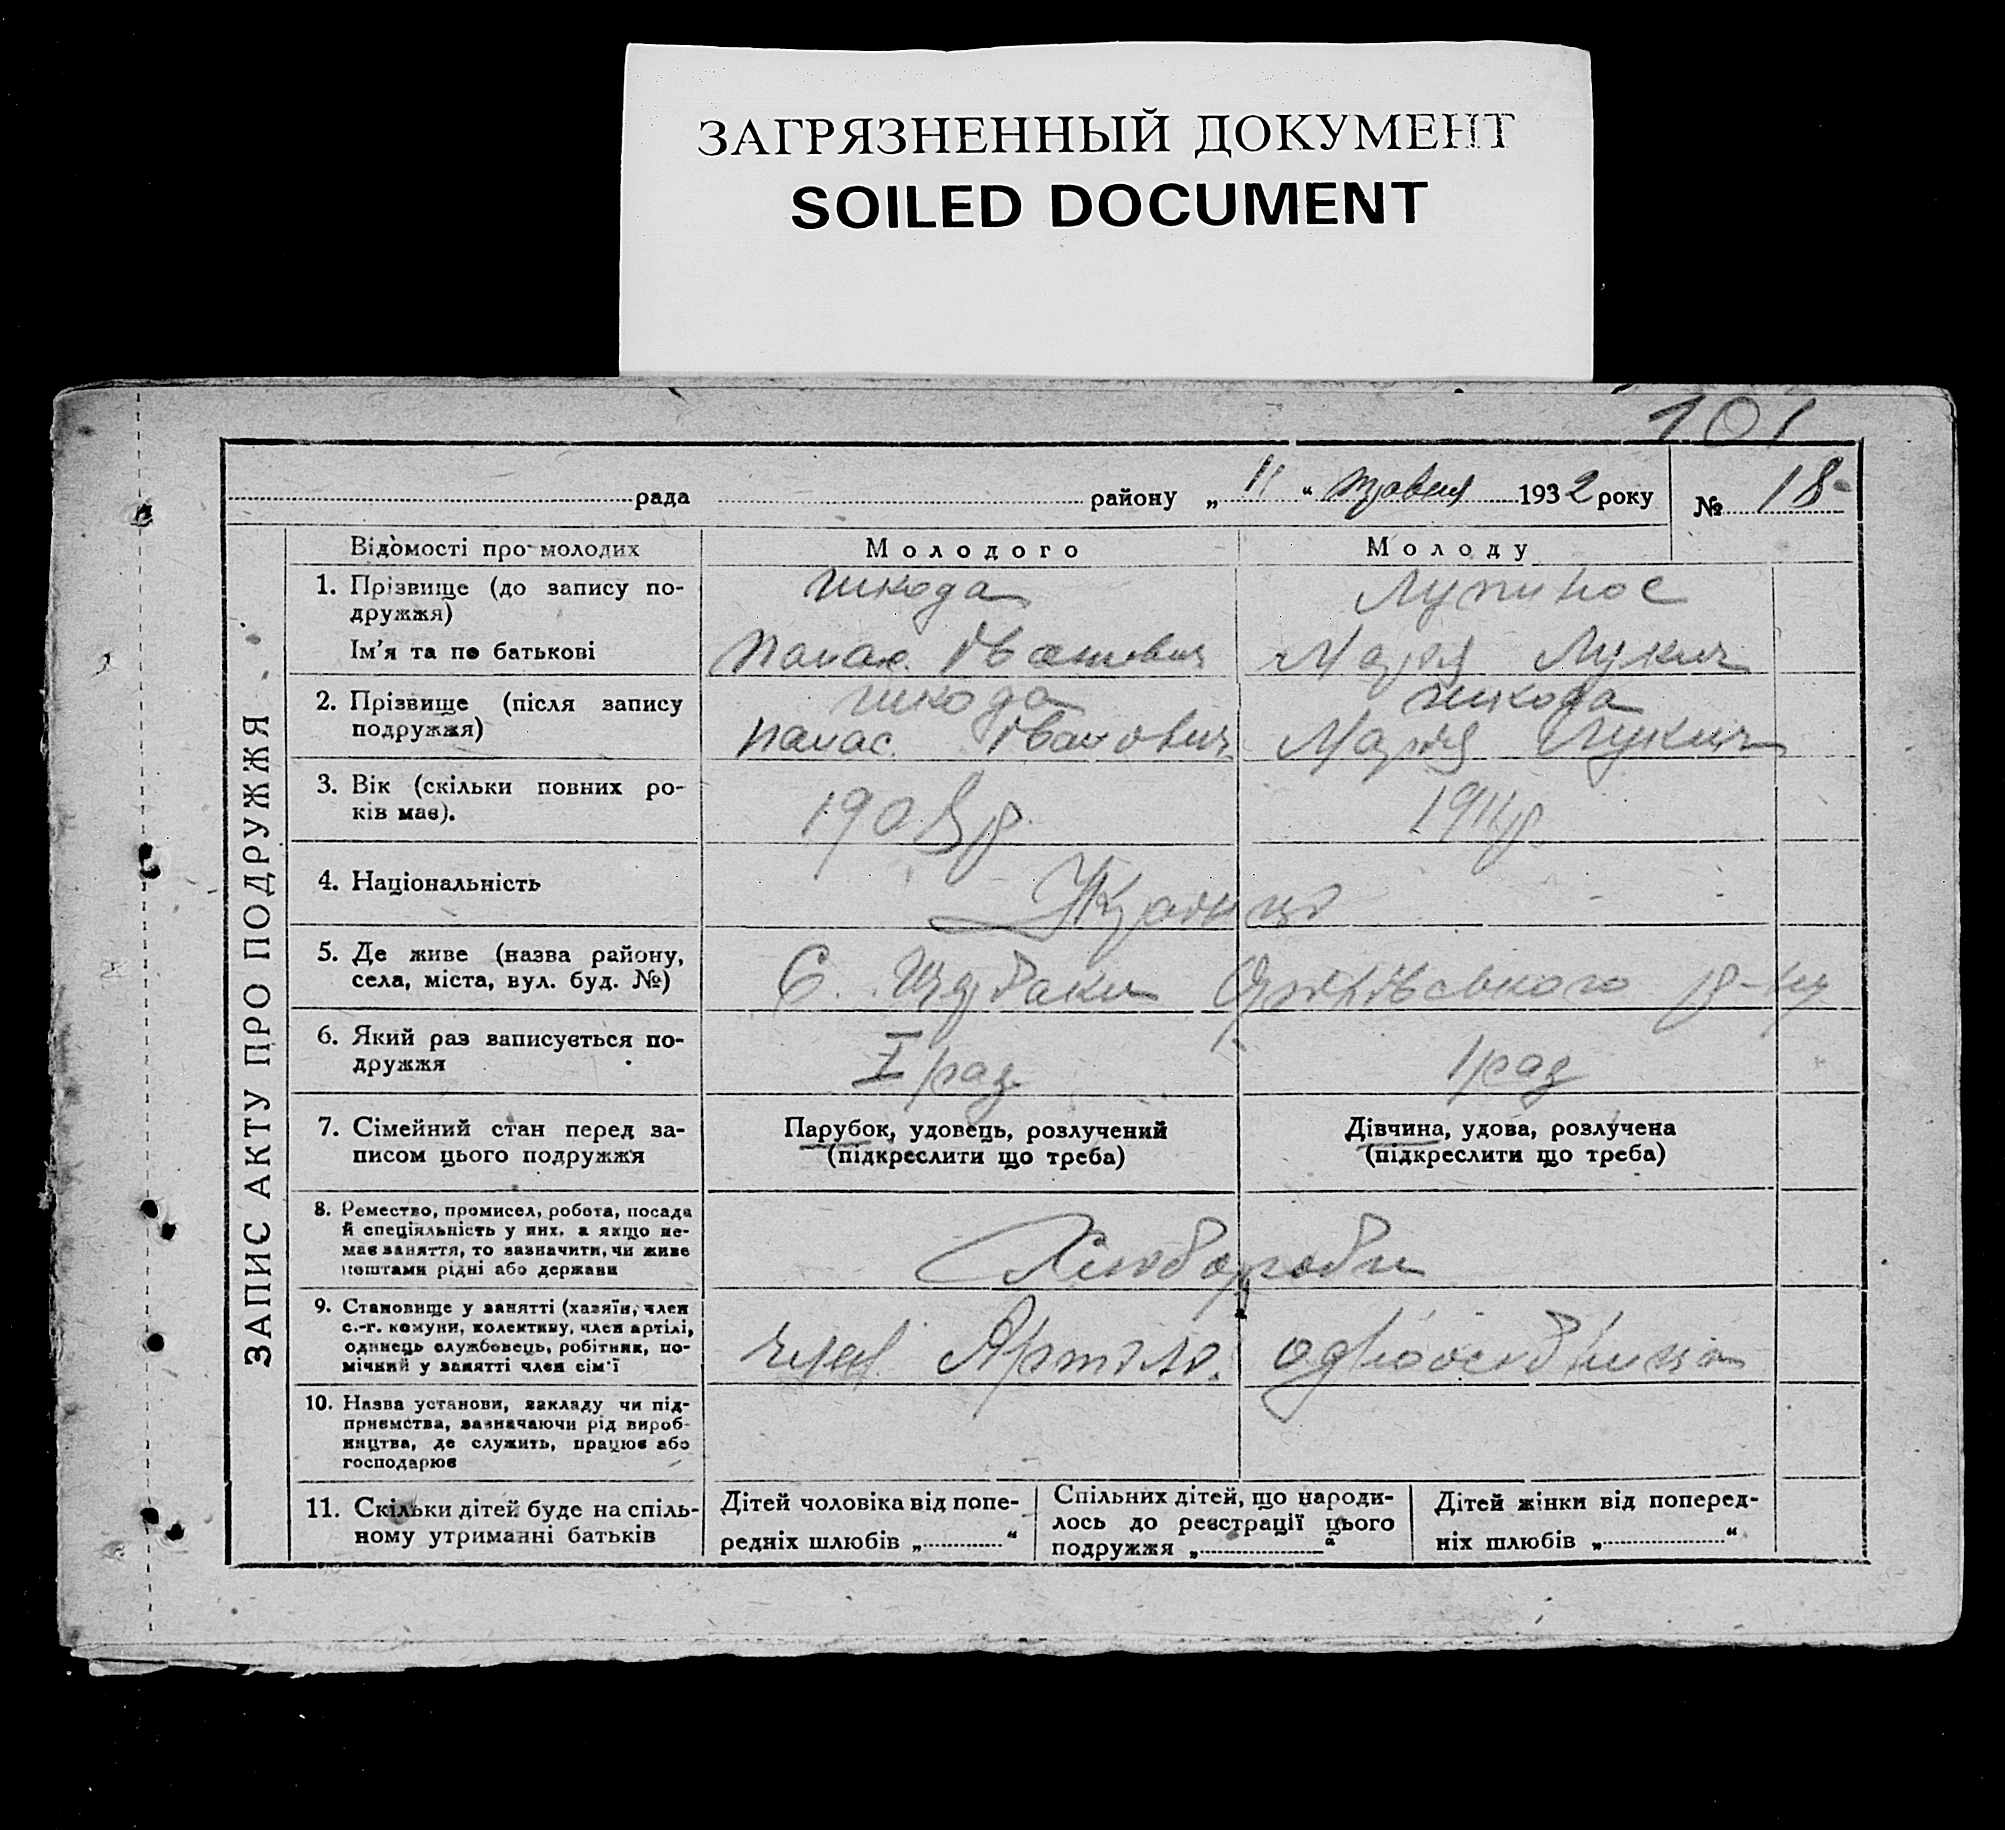 ЗАГРЯЗНЕННЫЙ ДОКУМЕНТ
SOILED DOCUMENT
101
рада району „ 11 “ травня 1932 року № 18
ЗАПИС АКТУ ПРО ПОДРУЖЖЯ
Відомості про молодих Молодого Молоду
1. Прізвище (до запису по-
дружжя)
Шкода Лупинос
Ім'я та по батькові
Панас Іванович Марія Лукич
2. Прізвище (після запису
подружжя)
Шкода Шкода
Панас Іванович Марія Лукич
3. Вік (скільки повних ро-
ків має).
1908р 1911р.
4. Національність
Українці
5. Де живе (назва району,
села, міста, вул. буд. №)
С. р-ну
6. Який раз записується по-
дружжя
I раз 1 раз
7. Сімейний стан перед за-
писом цього подружжя
Парубок, удовець, розлучений
(підкреслити що треба)
Дівчина, удова, розлучена
(підкреслити що треба)
8. Ремество, промисел, робота, посада
й спеціяльність у них, а якщо не-
має заняття, то зазначити, чи живе
коштами рідні або держави
Хлібороби
9. Становище у занятті (хазяїн, член
с.-г. комуни, колективу, член артілі,
одинець службовець, робітник, по-
мічний у занятті член сім'ї
член Артілі.
10. Назва установи, закладу чи під-
приємства, зазначаючи рід вироб-
ництва, де служить, працює або
господарює
11. Скільки дітей буде на спіль-
ному утриманні батьків
Дітей чоловіка від попе-
редніх шлюбів „ “
Спільних дітей, що народи-
лось до реєстрації цього
подружжя „ “
Дітей жінки від поперед-
ніх шлюбів „ “